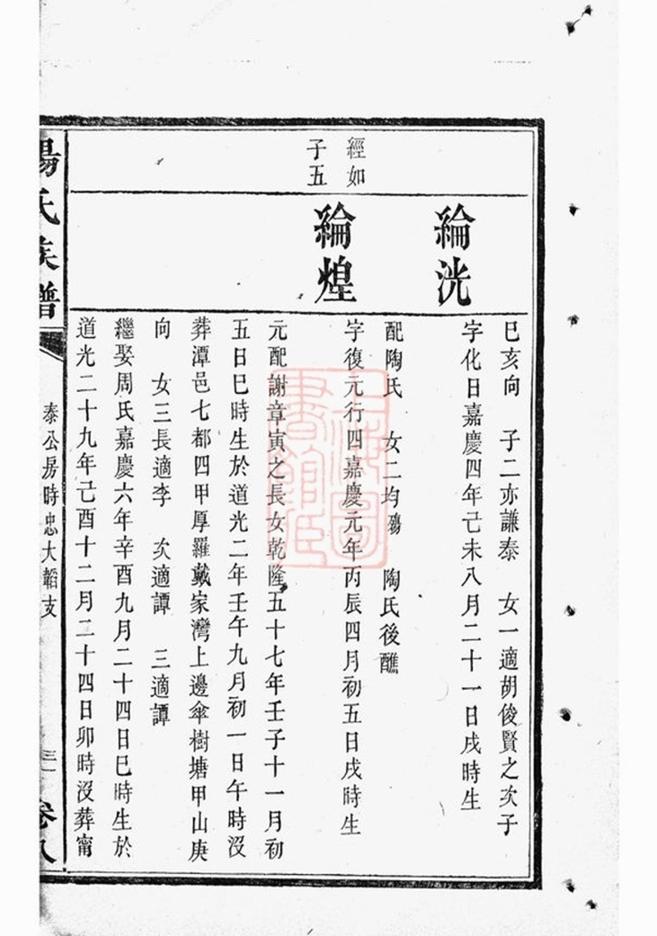 經如
子五
綸洸
綸煌
巳亥向 子二亦謙泰 女一適胡俊賢之次子
字化日嘉慶四年己未八月二十一日戌時生
配陶氏 女二均殤 陶氏後醮
字復元行四嘉慶元年丙辰四月初五日戌時生
元配謝章寅之長女乾隆五十七年壬子十一月初
五日巳時生於道光二年壬午九月初一日午時沒
葬潭邑七都四甲厚羅戴家灣上邊傘樹塘甲山庚
向 女三長適李 次適譚 三適譚
繼娶周氏嘉慶六年辛酉九月二十四日巳時生於
道光二十九年己酉十二月二十四日卯時沒葬甯
氏族譜
泰公房時忠大韜支
卷八